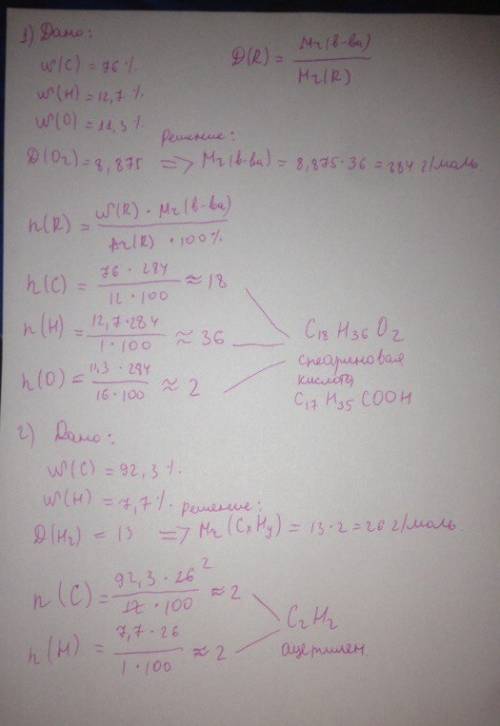 1) Дано:
W(C) = 76 %
D(R) = Mr(в-ва) / Mr(R)
W(H) = 12,7 %
W(O) = 11,3 %
Решение:
D(O2) = 8,875 => Mr(в-ва) = 8,875·36 = 284 г/моль
n(R) = W(R) · Mr(в-ва) / Ar(R) · 100%
n(C) = 76 · 284 / 12 · 100 ≈ 18
n(H) = 12,7·284 / 1·100 ≈ 36
n(O) = 11,3 · 284 / 16·100 ≈ 2
C18H36O2
стеариновая
кислота
C17H35COOH
2) Дано:
W(C) = 92,3 %.
W(H) = 7,7 %.
Решение:
D(H2) = 13 => Mr(CxHy) = 13·2 = 26 г/моль
n(C) = 92,3 · 26 2 / 12 · 100 ≈ 2
n(H) = 7,7 · 26 / 1·100 ≈ 2
C2H2
ацетилен